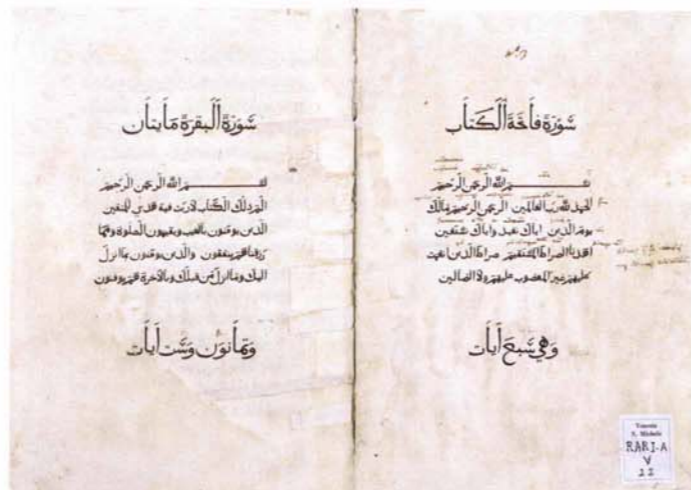 سُورَة فَأتحَة ألْكتَاب
بسم الله الرحمن الرحيم
الحمد لله رب العالمين الرحمن الرحيم مالك
يوم الدين اياك نعبد واياك نستعين
اهدنا الصراط المستقيم صراط الذين انعمت
عليهم غير المغضوب عليهم ولا الضالين
وَهي سَبعَ أيَات
Venezia
S. Michele
RARI-A
V
22
سُورَة ألْبقرَة مَأيتَأن
بسم الله الرحمن الرحيم
الم ذلك الكتاب لا ريب فيه هدي للمتقين
الذين يومنون بالغيب ويقيمون الصلوة ومما
رزقناهم ينفقون والذين يومنون بما انزل
اليك وما انزل من قبلك وبالاخرة هم يوقنون
وَثمَأنوَن وَسَت أيَأت